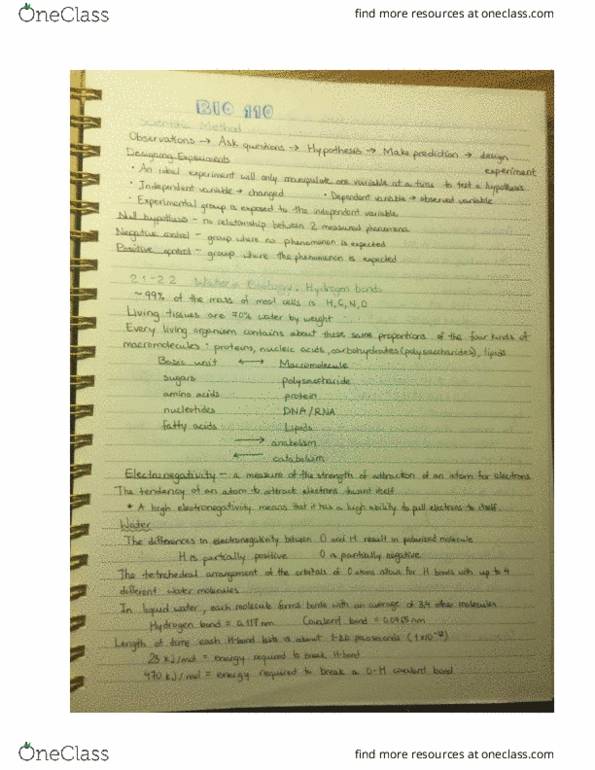 OneClass
find more resources at oneclass.com
BIO 110
Scientific Method
Observations → Ask questions → Hypothesis → Make prediction → design
experiment
Designing Experiments
• An ideal experiment will only manipulate one variable at a time to test a hypothesis
• Independent variable → changed • Dependent variable → observed variable
• Experimental group is exposed to the independent variable
Null hypothesis - no relationship between 2 measured phenomena
Negative control - group where no phenomenon is expected
Positive control - group where the phenomenon is expected
2.1-2.2 Water in Biology, Hydrogen bonds
~99% of the mass of most cells is H, C, N, O
Living tissues are 70% water by weight
Every living organism contains about these same proportions of the four kinds of
macromolecules: proteins, nucleic acids, carbohydrates (polysaccharides), lipids
Basic unit ↔ Macromolecule
sugars polysaccharide
amino acids protein
nucleotides DNA/RNA
fatty acids Lipids
→ anabolism
← catabolism
Electronegativity - a measure of the strength of attraction of an atom for electrons
The tendency of an atom to attract electrons toward itself
* A high electronegativity means that it has a high ability to pull electrons to itself.
Water
The differences in electronegativity between O and H result in polarized molecule
H is partially positive O is partially negative
The tetrahedral arrangement of the orbitals of O atoms allows for H bonds with up to 4
different water molecules
In liquid water, each molecule forms bonds with an average of 3.4 other molecules
Hydrogen bond = 0.177 nm Covalent bond = 0.0965 nm
Length of time each H-bond lasts is about 1-20 picoseconds
23 kJ/mol = energy required to break H-bond
470 kJ/mol = energy required to break a O-H covalent bond
OneClass
find more resources at oneclass.com